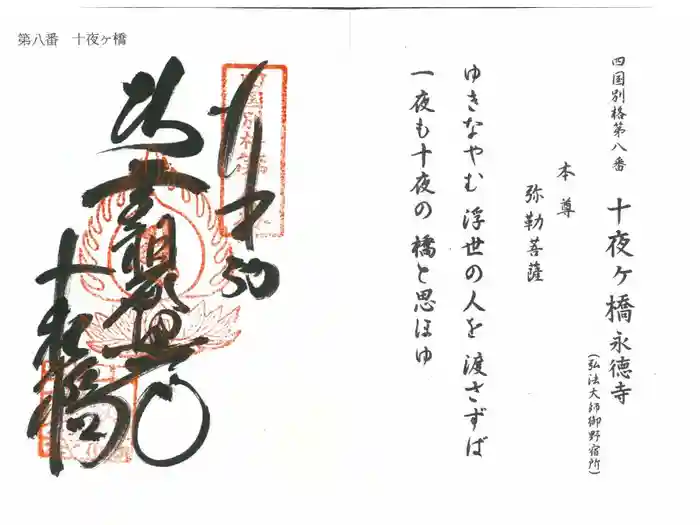 第八番 十夜ヶ橋
四国別格第八番 十夜ヶ橋永徳寺
(弘法大師御野宿所)
本尊
弥勒菩薩
ゆきなやむ 浮世の人を 渡さずば
一夜も十夜の 橋と思ほゆ
十夜橋